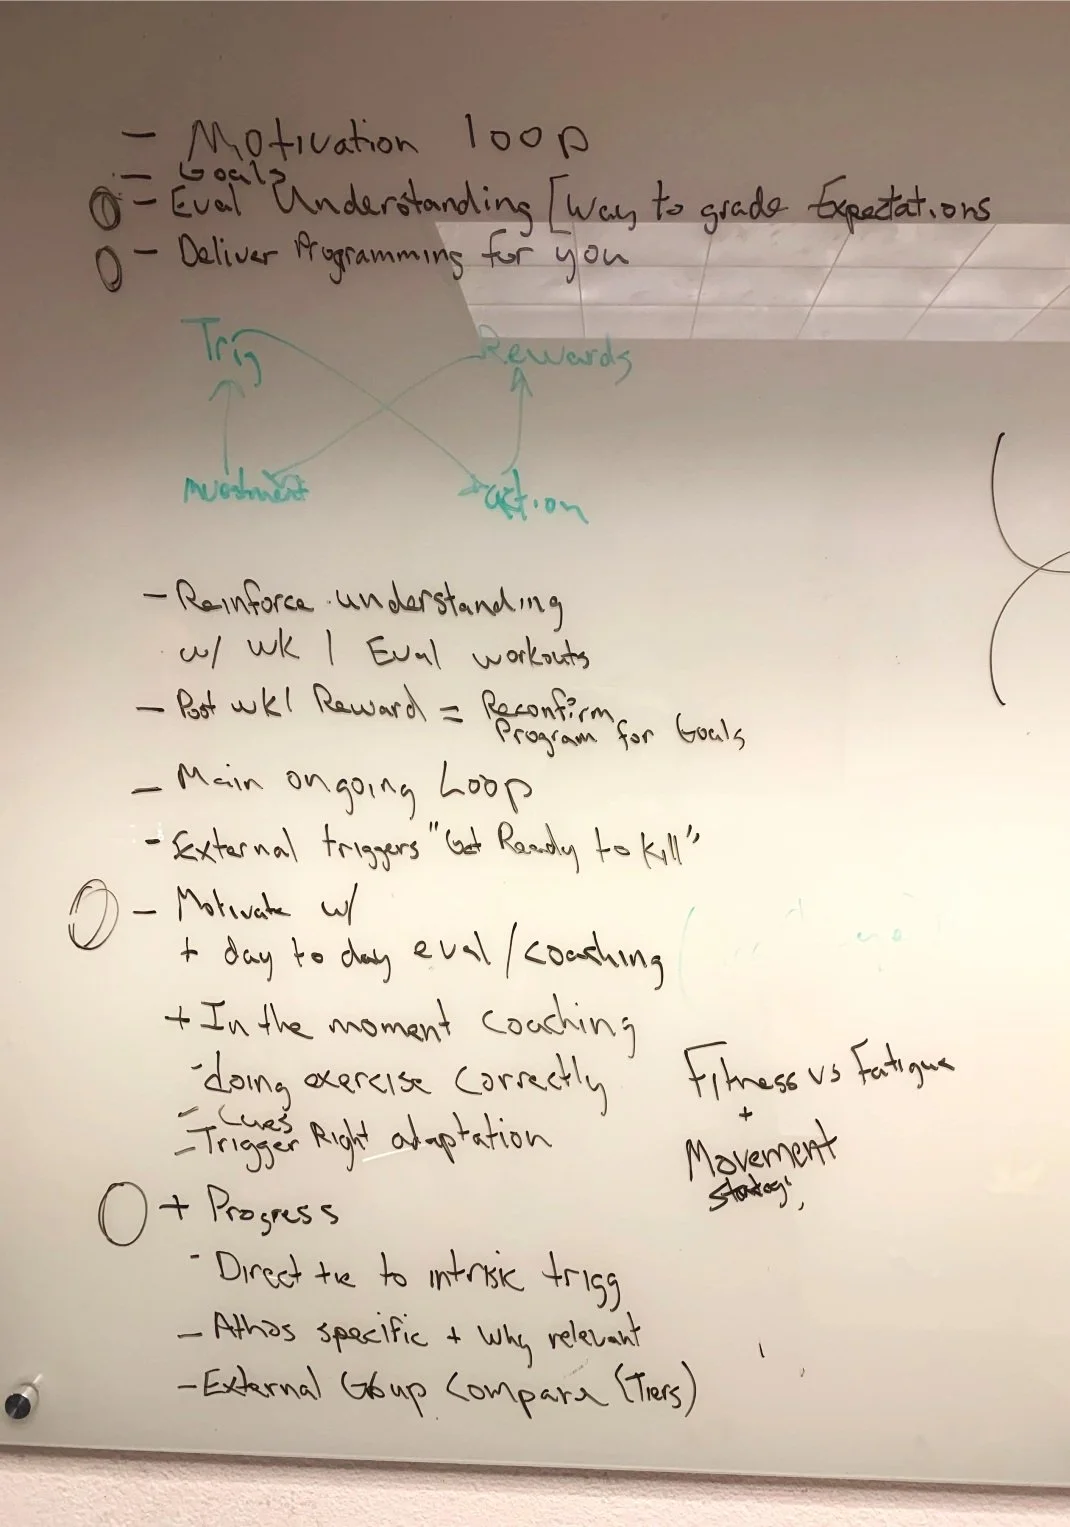 - Motivation loop
- Goals
- Eval Understanding [Way to grade Expectations
- Deliver Programming for you
Trig Rewards
Investment action
- Reinforce understanding
w/ wk 1 Eval workouts
- Post wk1 Reward = Reconfirm
Program for Goals
- Main ongoing Loop
- External triggers "Get Ready to Kill"
- Motivate w/
+ day to day eval/coaching
+ In the moment coaching
- doing exercise correctly
- Cues
- Trigger Right adaptation
Fitness vs Fatigue
+
Movement
+ Progress
- Direct tie to intrisic trigg
- Athos specific + why relevant
- External Group Compare (Tiers)